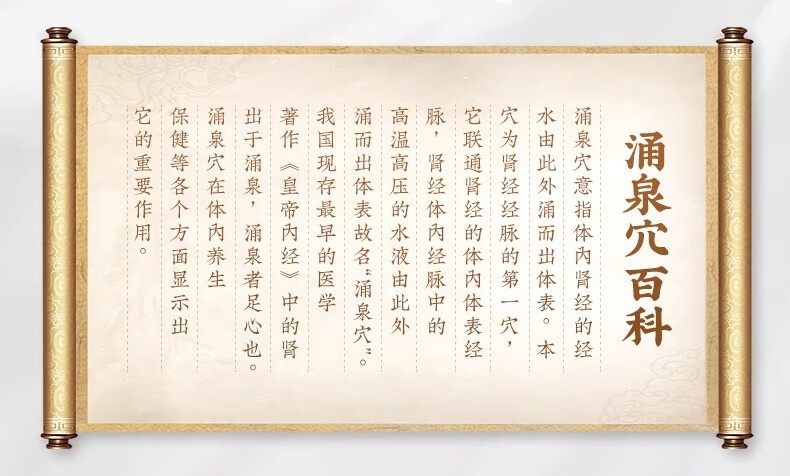 涌泉穴百科
涌泉穴意指体内肾经的经
水由此外涌而出体表。本
穴为肾经经脉的第一穴，
它联通肾经的体内体表经
脉，肾经体内经脉中的
高温高压的水液由此外
涌而出体表故名“涌泉穴”。
我国现存最早的医学
著作《皇帝内经》中的肾
出于涌泉，涌泉者足心也。
涌泉穴在体内养生
保健等各个方面显示出
它的重要作用。